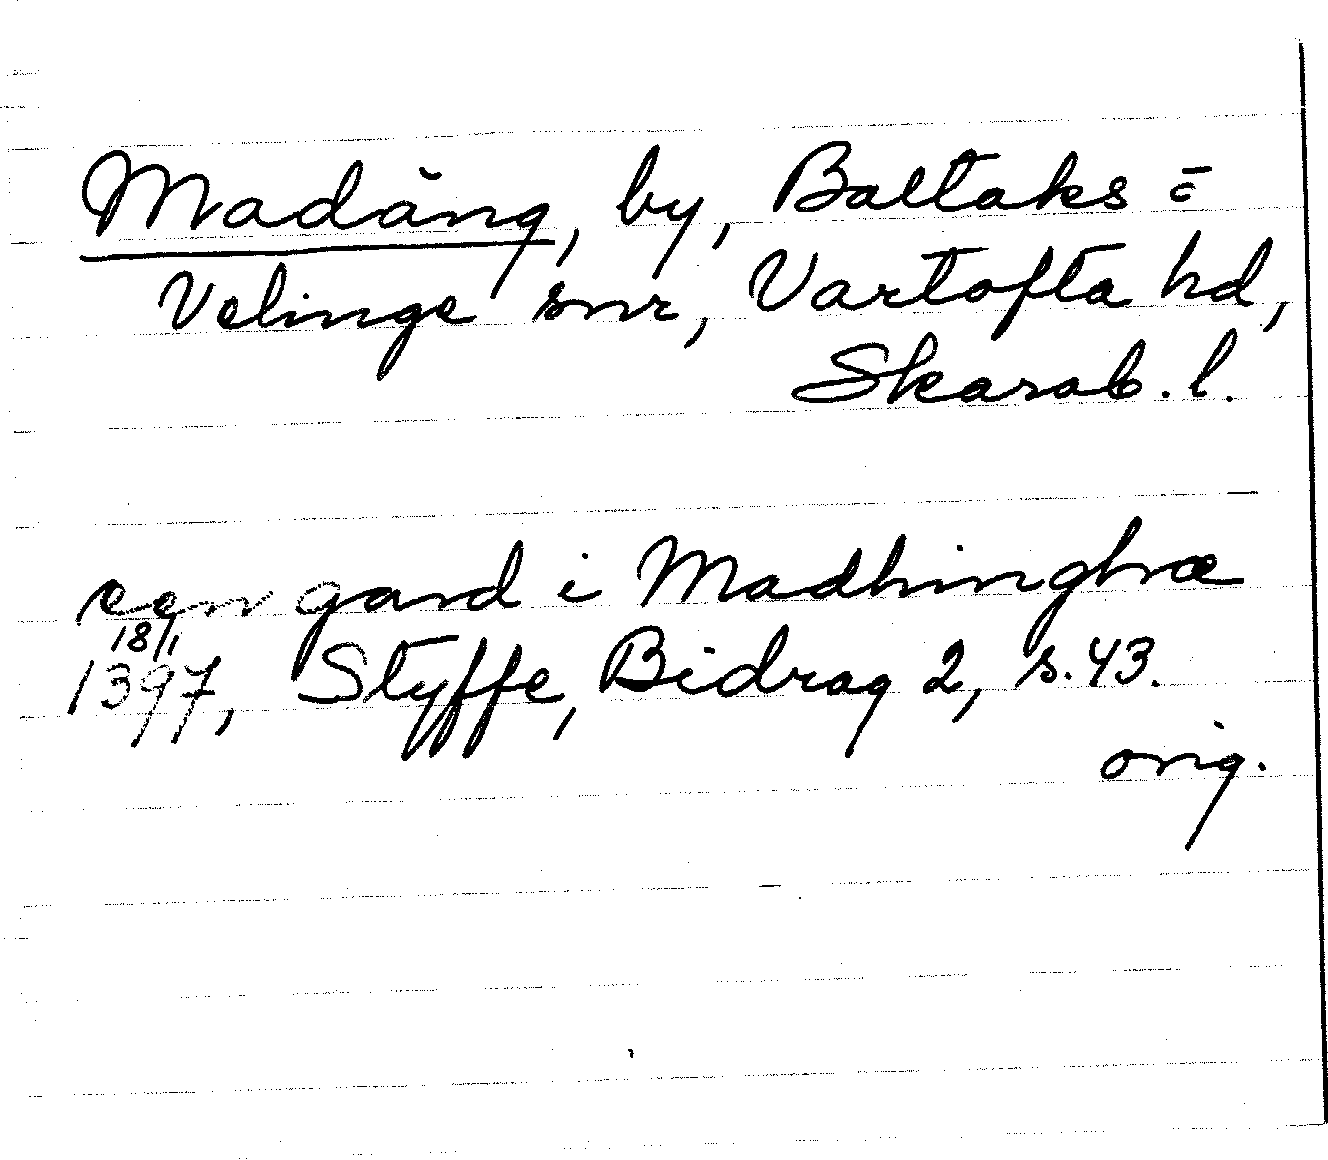 Madäng, by, Baltaks =
Velinge snr, Vartofta hd,
Skarab. l.
een gard i Madhinghæ
18/1
1397, Styffe, Bidrag 2, s. 43.
orig.